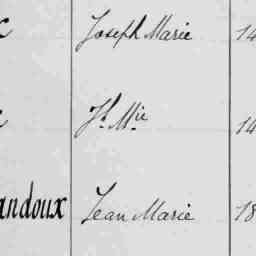 Joseph Marie 14
Jh Mie 14
andoux Jean Marie 18